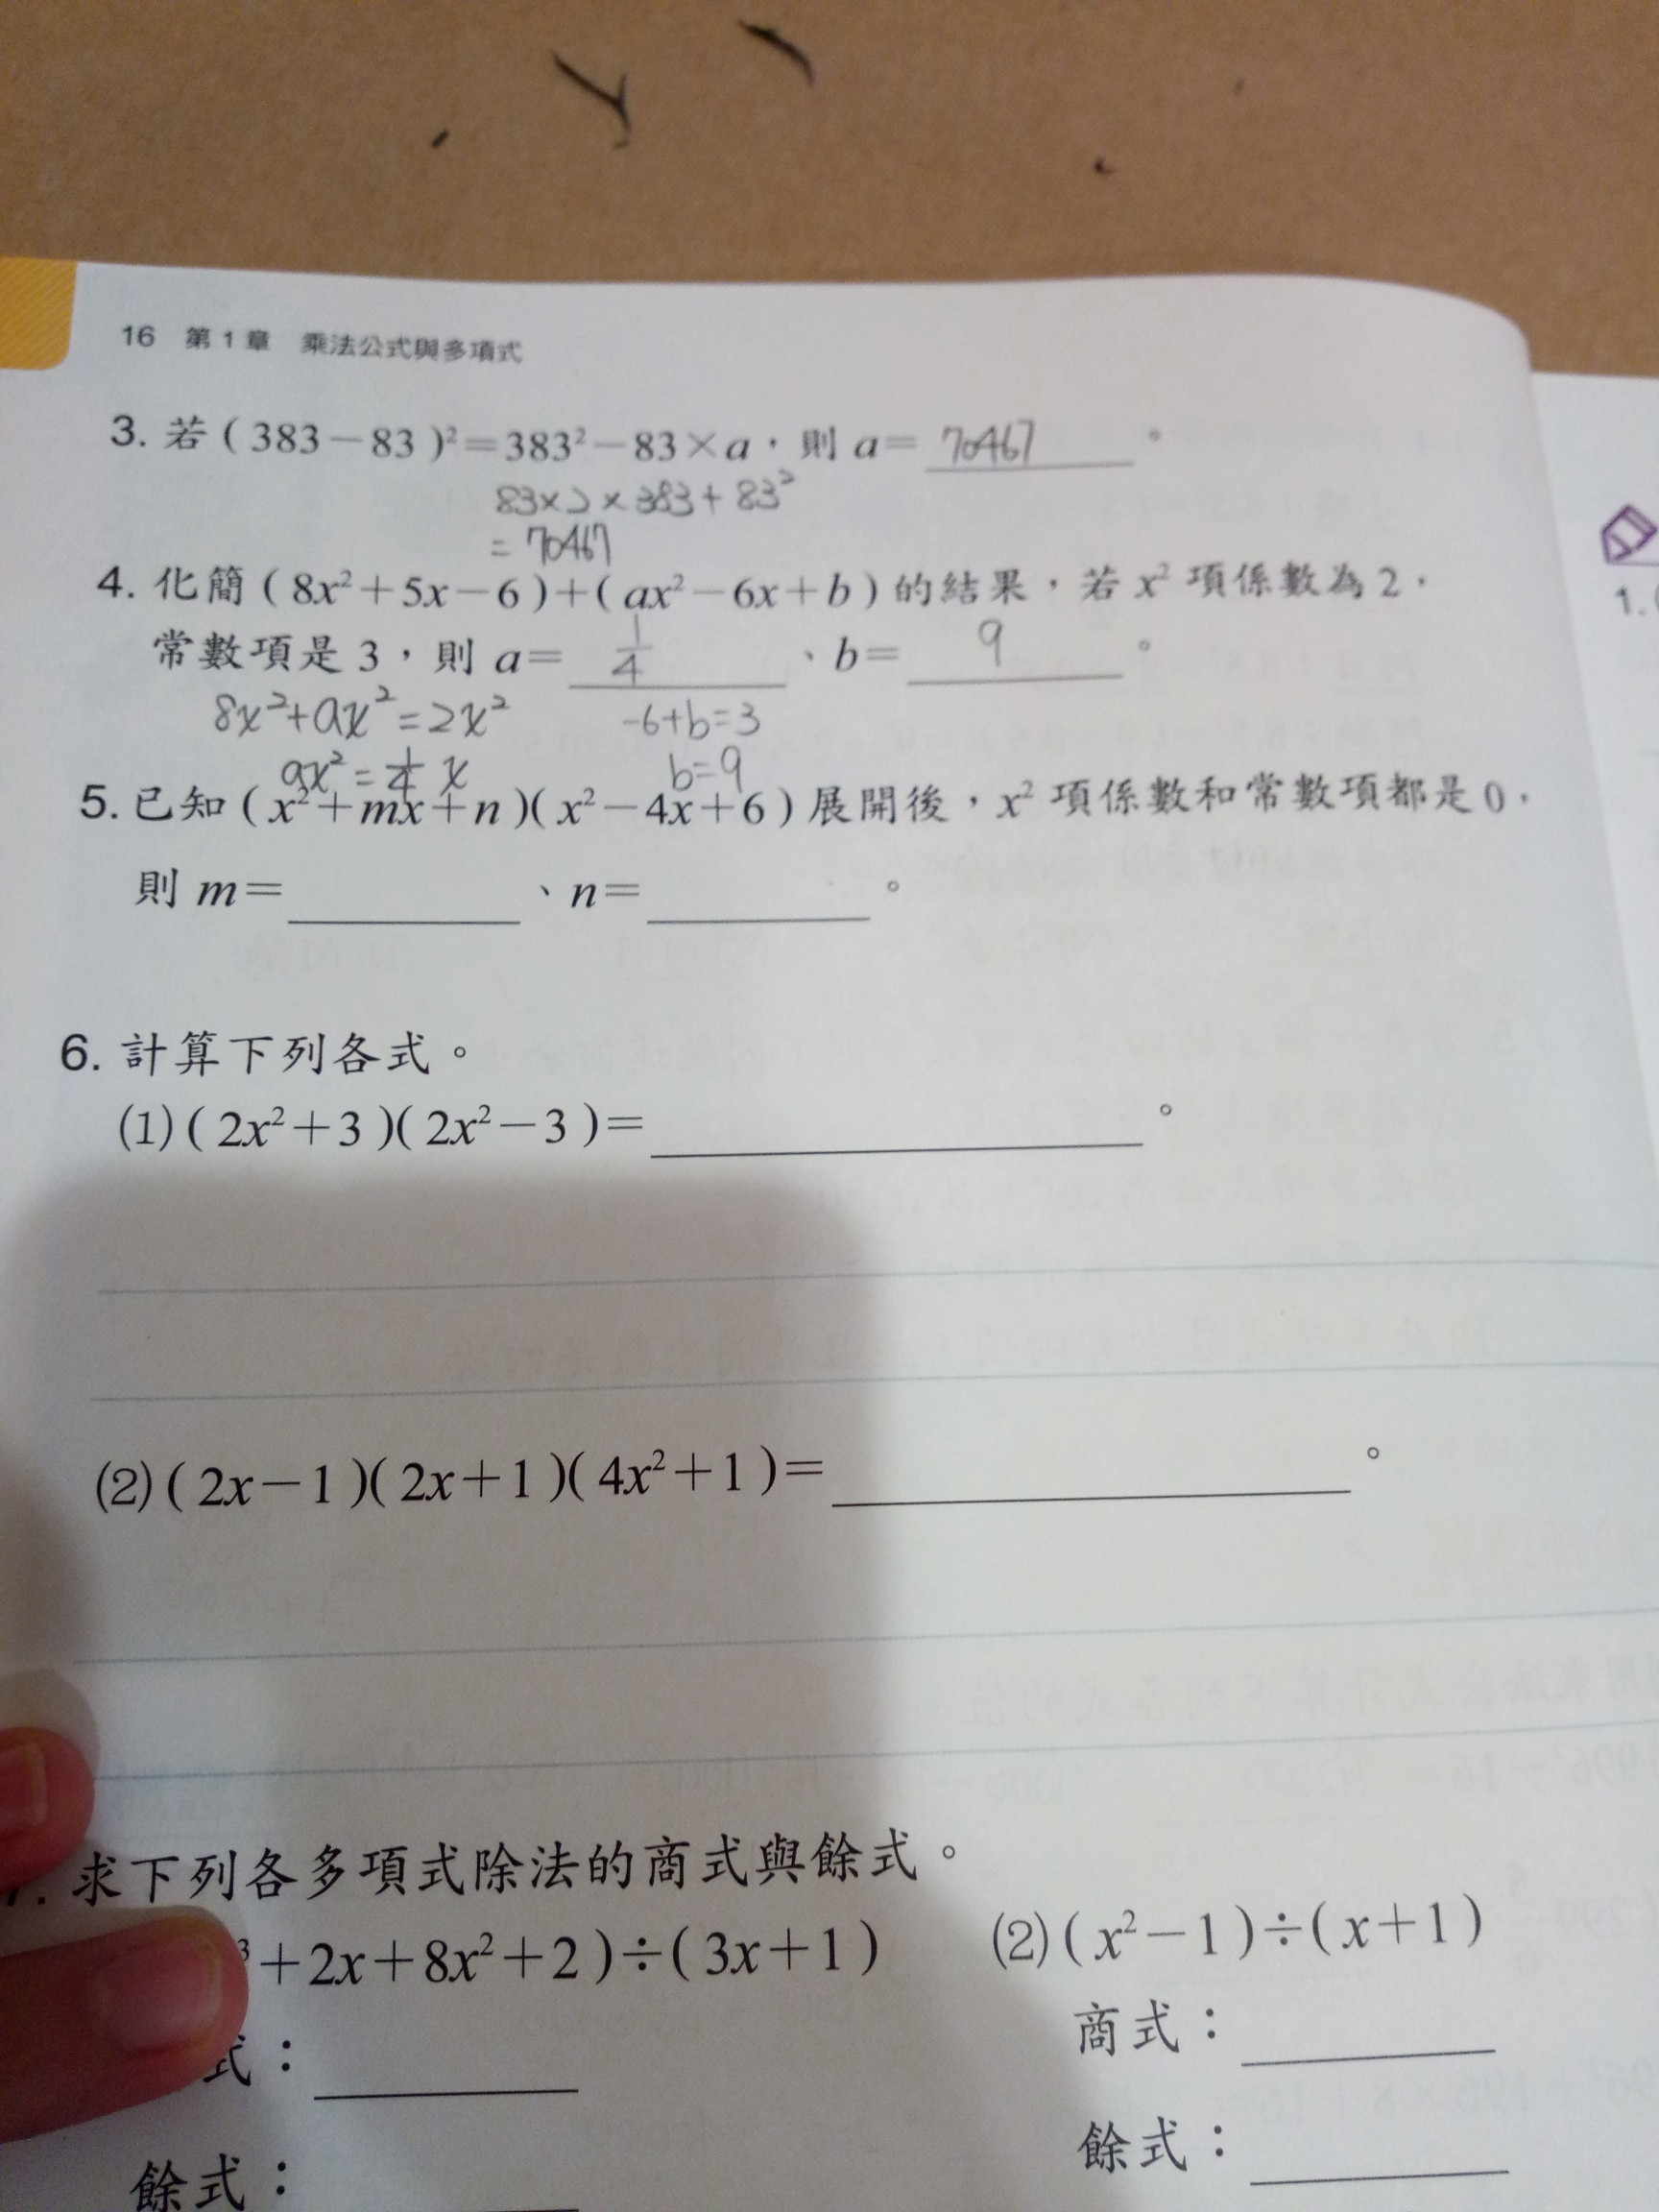 16 第1章 乘法公式與多項式
3. 若(383－83)²＝383²－83×a，則 a＝ 70467 。
83×2×383+83²
= 70467
4. 化簡(8x²＋5x－6)＋(ax²－6x＋b)的結果，若 x² 項係數為 2，
常數項是 3，則 a＝ 1/4 、b＝ 9 。
8x²+ax²=2x² -6+b=3
ax²=1/4 x b=9
5. 已知(x²＋mx＋n)(x²－4x＋6)展開後，x² 項係數和常數項都是 0，
則 m＝ 、n＝ 。
6. 計算下列各式。
(1)(2x²＋3)(2x²－3)＝ 。
(2)(2x－1)(2x＋1)(4x²＋1)＝ 。
求下列各多項式除法的商式與餘式。
³＋2x＋8x²＋2)÷(3x＋1) (2)(x²－1)÷(x＋1)
式： 商式：
餘式： 餘式：
1.